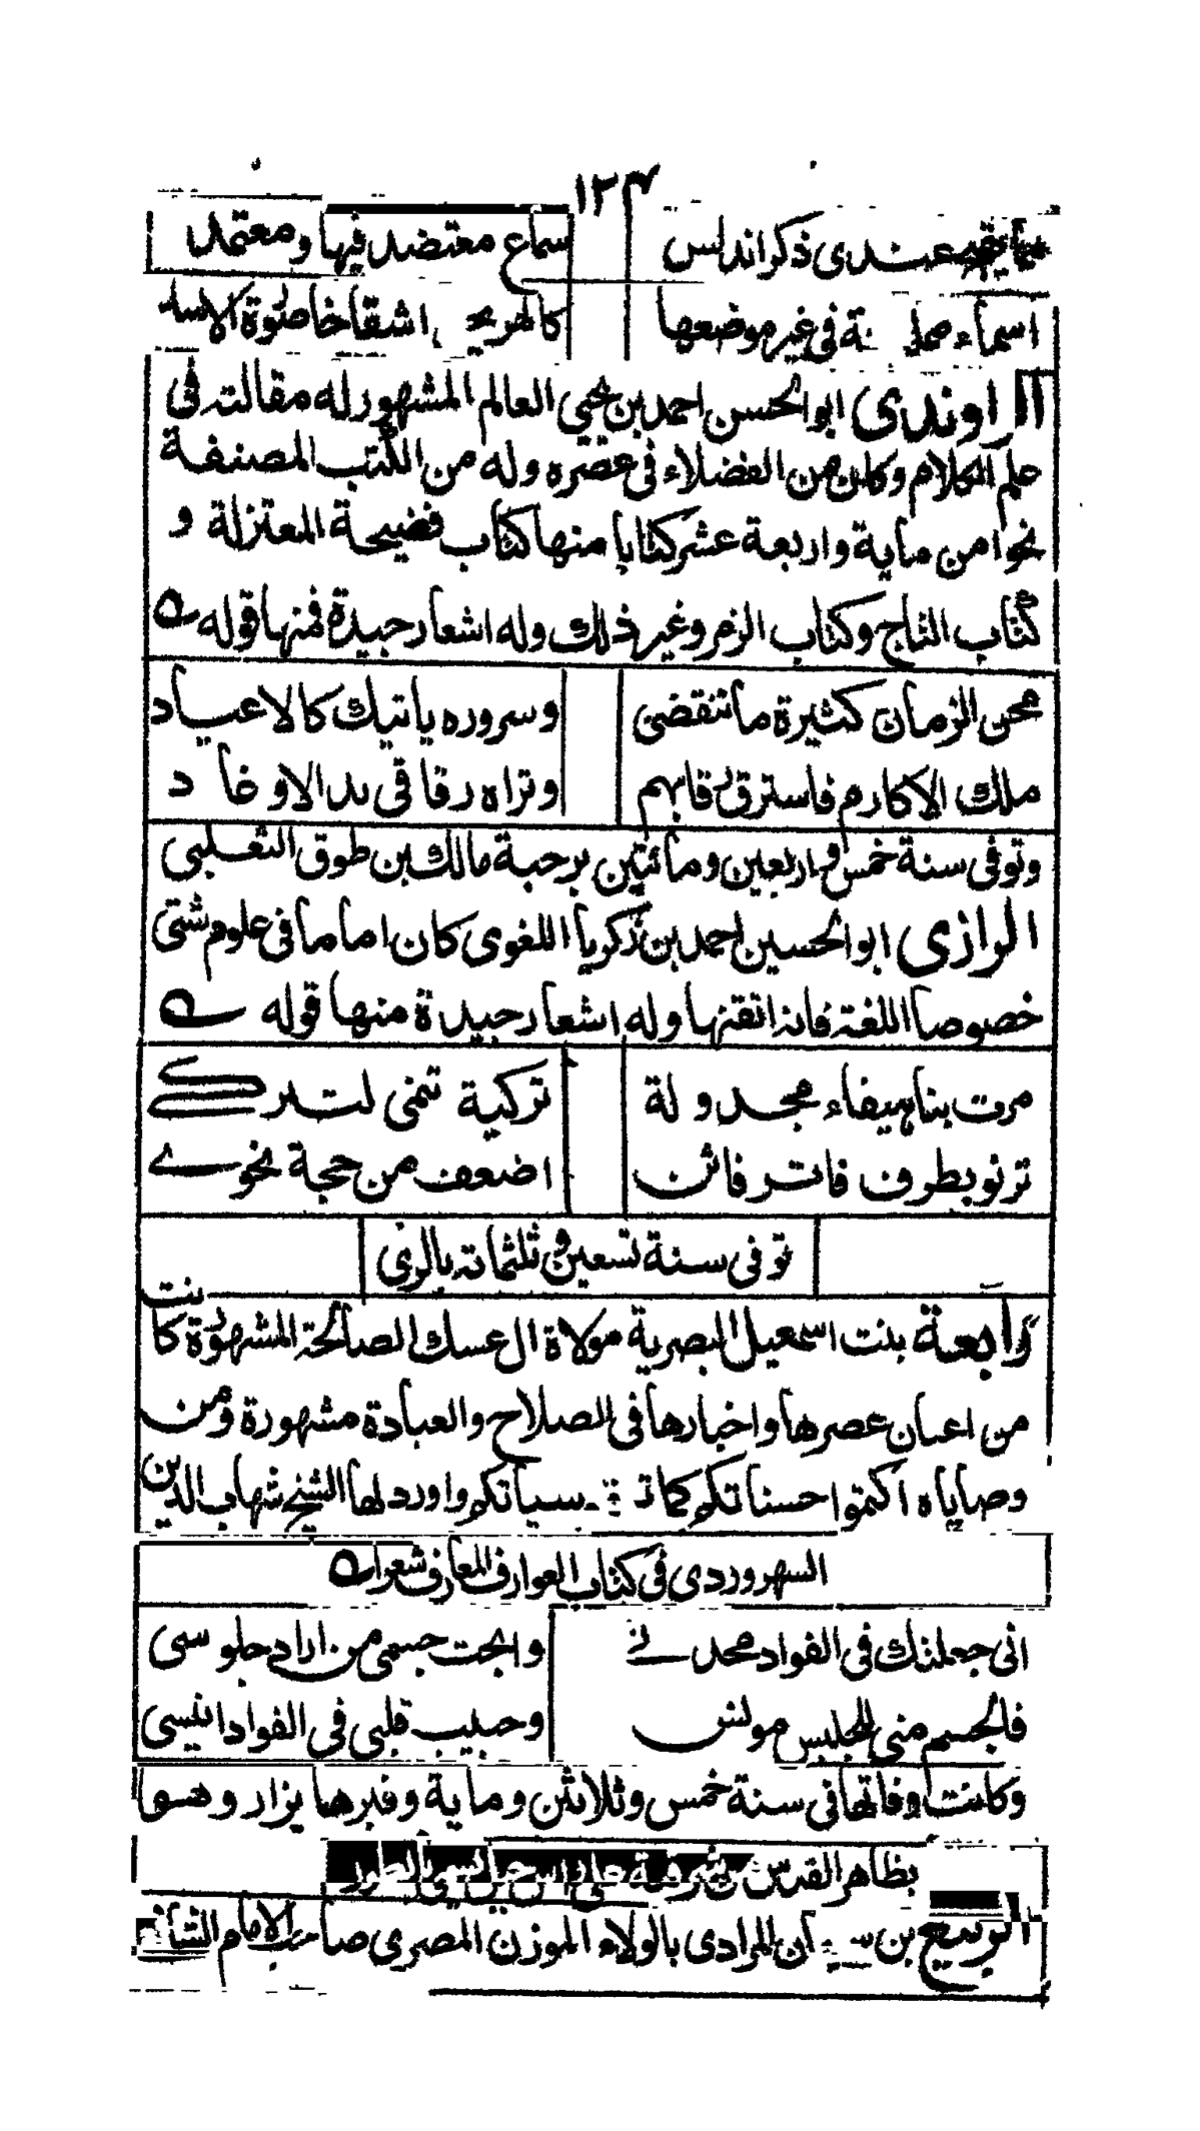 ١٢٣
عندى ذكر اندلس سماع معتضد فيها ومعتمد
اسماء فى غير موضعها كالهر اشقاخا صوة الاسد
الراوندى ابو الحسن احمد بن يحيى العالم المشهور له مقالته فى
علم الكلام وكان من الفضلاء فى عصره وله من الكتب المصنفة
نحوا من ماية واربعة عشر كتابا منها كتاب فضيحة المعتزلة و
كتاب التاج وكتاب الزمر وغير ذلك وله اشعار جيدة فمنها قوله
محن الزمان كثيرة ما تنقضى وسروره ياتيك كالاعياد
ملك الاكارم فاسترق رقابهم وتراه رقا فى يد الاوغاد
وتوفى سنة خمس واربعين ومائتين برحبة مالك بن طوق التغلبى
الرازى ابو الحسين احمد بن زكريا اللغوى كان اماما فى علوم شتى
خصوصا اللغة فانه اتقنها وله اشعار جيدة منها قوله
مرت بنا هيفاء مجدولة تركية تنمى لتركے
ترنو بطرف فاتر فاتن اضعف من حجة نحوے
توفى سنة تسعين وثلثمائة بالرى
رابعة بنت اسمعيل البصرية مولاة ال عسك الصالحة المشهورة كانت
من اعيان عصرها واخبارها فى الصلاح والعبادة مشهورة ومن
وصاياه اكتموا حسناتكم كما سياتكم واورد لها الشيخ شهاب الدين
السهروردى فى كتاب العوارف المعارف شعرا
انى جعلتك فى الفواد محدثے وابحت جسمى من اراد جلوسى
فالجسم منى للجليس مولس وحبيب قلبى فى الفواد انيسى
وكانت وفاتها فى سنة خمس وثلاثين وماية وقبرها يزار وهو
بظاهر القدس من شرقية على راس جبل يسمى بالطور
الربيع بن سليمان المرادى بالولاء الموزن المصرى صاحب الامام الشافعى